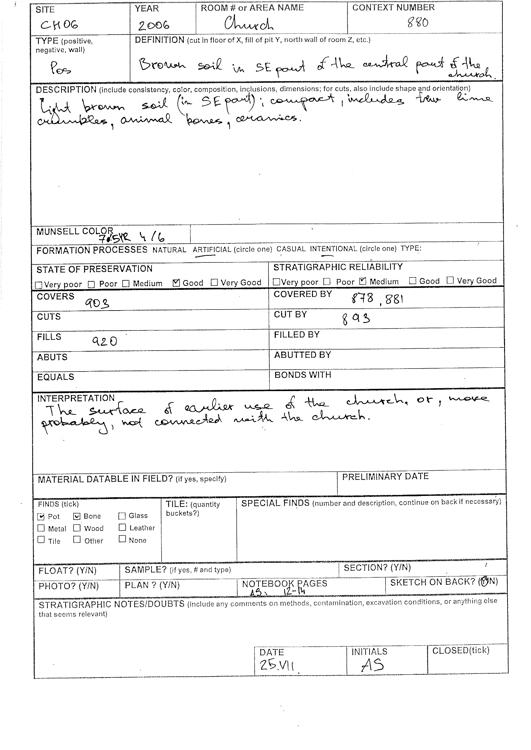 SITE YEAR ROOM # or AREA NAME CONTEXT NUMBER
CH06 2006 Church 880
TYPE (positive, negative, wall) DEFINITION (cut in floor of X, fill of pit Y, north wall of room Z, etc.)
Pos Brown soil in SE part of the central part of the church
DESCRIPTION (include consistency, color, composition, inclusions, dimensions; for cuts, also include shape and orientation)
Light brown soil (in SE part); compact, includes few lime
crumbles, animal bones, ceramics.
MUNSELL COLOR
7.5YR 4/6
FORMATION PROCESSES NATURAL ARTIFICIAL (circle one) CASUAL INTENTIONAL (circle one) TYPE:
STATE OF PRESERVATION STRATIGRAPHIC RELIABILITY
☐ Very poor ☐ Poor ☐ Medium ☑ Good ☐ Very Good ☐ Very poor ☐ Poor ☑ Medium ☐ Good ☐ Very Good
COVERS 903 COVERED BY 878, 881
CUTS CUT BY 893
FILLS 920 FILLED BY
ABUTS ABUTTED BY
EQUALS BONDS WITH
INTERPRETATION
The surface of earlier use of the church, or, more
probably, not connected with the church.
MATERIAL DATABLE IN FIELD? (if yes, specify) PRELIMINARY DATE
FINDS (tick) TILE: (quantity buckets?) SPECIAL FINDS (number and description, continue on back if necessary)
☑ Pot ☑ Bone ☐ Glass
☐ Metal ☐ Wood ☐ Leather
☐ Tile ☐ Other ☐ None
FLOAT? (Y/N) SAMPLE? (if yes, # and type) SECTION? (Y/N)
PHOTO? (Y/N) PLAN ? (Y/N) NOTEBOOK PAGES SKETCH ON BACK? (Y/N)
AS, 12-14
STRATIGRAPHIC NOTES/DOUBTS (Include any comments on methods, contamination, excavation conditions, or anything else
that seems relevant)
DATE INITIALS CLOSED(tick)
25.VII AS